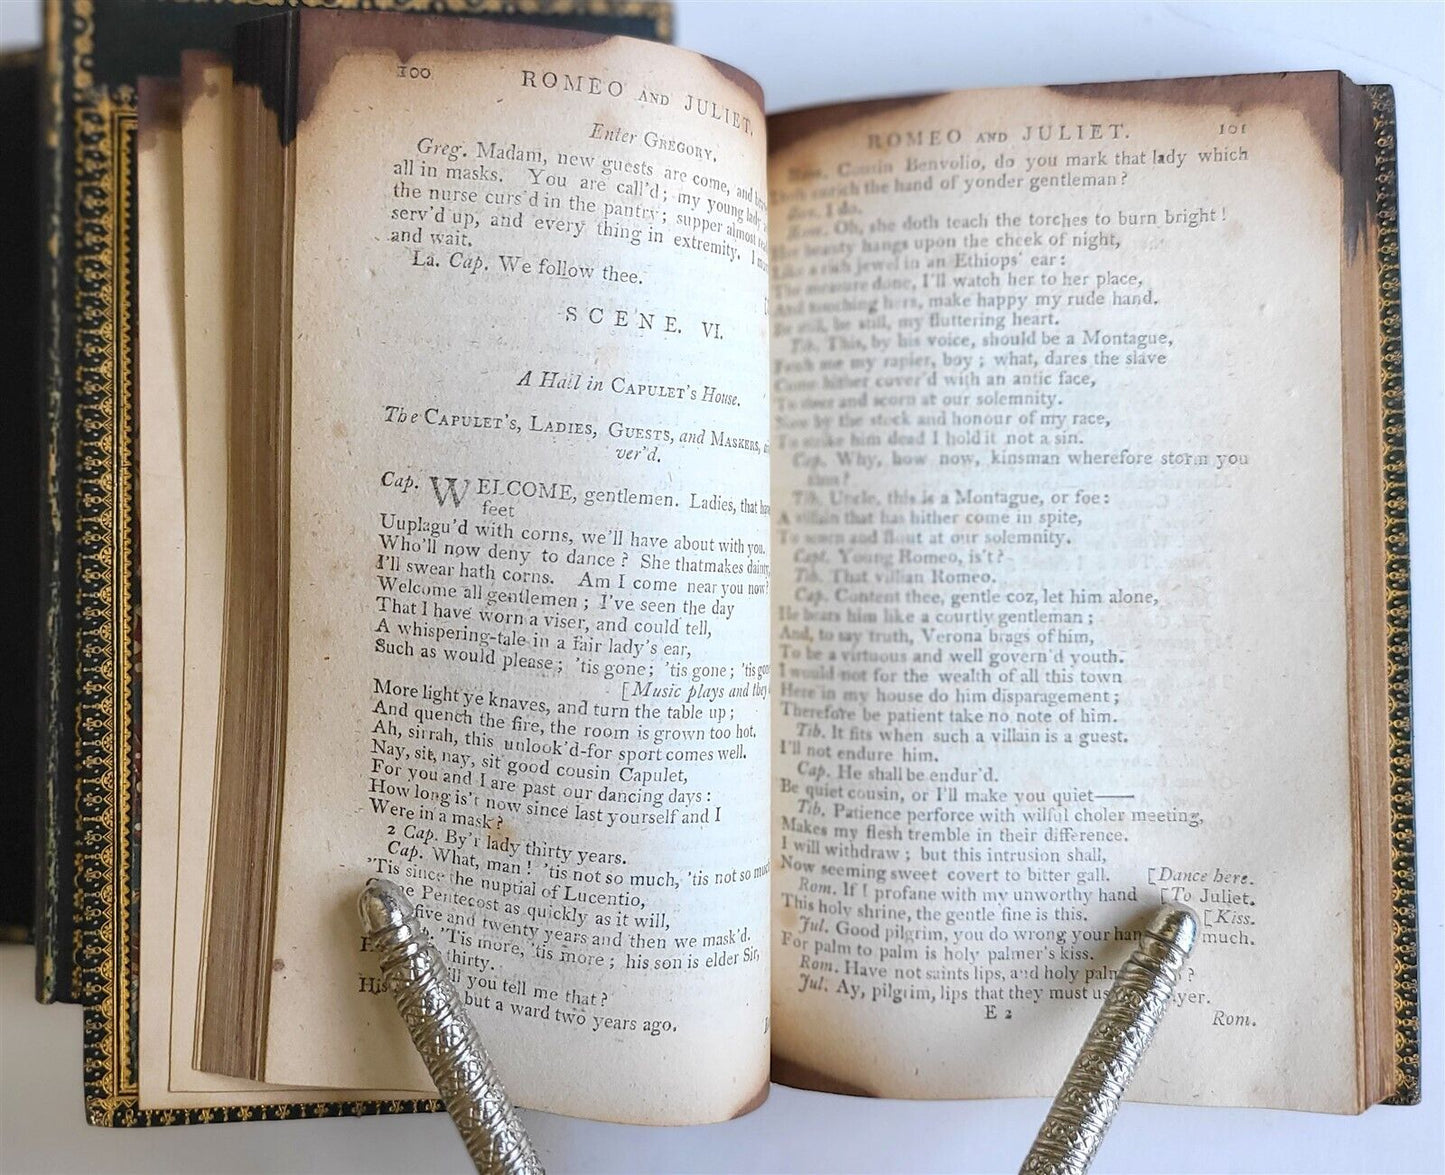 100
ROMEO AND JULIET.
Enter GREGORY,
Greg. Madam, new guests are come, and
all in masks. You are call'd; my young lady
the nurse curs'd in the pantry; supper almost
serv'd up, and every thing in extremity. I
and wait.
La. Cap. We follow thee.
SCENE. VI.
A Hall in CAPULET's House.
The CAPULET's, LADIES, GUESTS, and MASKERS,
ver'd.
Cap. WELCOME, gentlemen. Ladies, that have
feet
Uuplagu'd with corns, we'll have about with you.
Who'll now deny to dance? She thatmakes dainty,
I'll swear hath corns. Am I come near you now?
Welcome all gentlemen; I've seen the day
That I have worn a viser, and could tell,
A whispering-tale in a fair lady's ear,
Such as would please; 'tis gone; 'tis gone; 'tis gone
[Music plays and they
More light ye knaves, and turn the table up;
And quench the fire, the room is grown too hot.
Ah, sirrah, this unlook'd-for sport comes well.
Nay, sit, nay, sit good cousin Capulet,
For you and I are past our dancing days:
How long is't now since last yourself and I
Were in a mask?
2 Cap. By'r lady thirty years.
Cap. What, man! 'tis not so much, 'tis not so much
'Tis since the nuptial of Lucentio,
Pentecost as quickly as it will,
five and twenty years and then we mask'd.
'Tis more, 'tis more; his son is elder Sir,
thirty.
you tell me that?
His but a ward two years ago.
ROMEO AND JULIET. 101
Rom. Cousin Benvolio, do you mark that lady which
Doth enrich the hand of yonder gentleman?
Ben. I do.
Rom. Oh, she doth teach the torches to burn bright!
Her beauty hangs upon the cheek of night,
Like a rich jewel in an Ethiops' ear:
The measure done, I'll watch her to her place,
And touching hers, make happy my rude hand.
Be still, be still, my fluttering heart.
Tib. This, by his voice, should be a Montague,
Fetch me my rapier, boy; what, dares the slave
Come hither cover'd with an antic face,
To sneer and scorn at our solemnity.
Now by the stock and honour of my race,
To strike him dead I hold it not a sin.
Cap. Why, how now, kinsman wherefore storm you
thus?
Tib. Uncle, this is a Montague, or foe:
A villain that has hither come in spite,
To scorn and flout at our solemnity.
Capt. Young Romeo, is't?
Tib. That villian Romeo.
Cap. Content thee, gentle coz, let him alone,
He bears him like a courtly gentleman;
And, to say truth, Verona brags of him,
To be a virtuous and well govern'd youth.
I would not for the wealth of all this town
Here in my house do him disparagement;
Therefore be patient take no note of him.
Tib. It fits when such a villain is a guest.
I'll not endure him.
Cap. He shall be endur'd.
Be quiet cousin, or I'll make you quiet——
Tib. Patience perforce with wilful choler meeting,
Makes my flesh tremble in their difference.
I will withdraw; but this intrusion shall,
Now seeming sweet covert to bitter gall. [Dance here.
Rom. If I profane with my unworthy hand [To Juliet.
This holy shrine, the gentle fine is this. [Kiss.
Jul. Good pilgrim, you do wrong your much.
For palm to palm is holy palmer's kiss.
Rom. Have not saints lips, and holy ?
Jul. Ay, pilgrim, lips that they must
E 2
Rom.